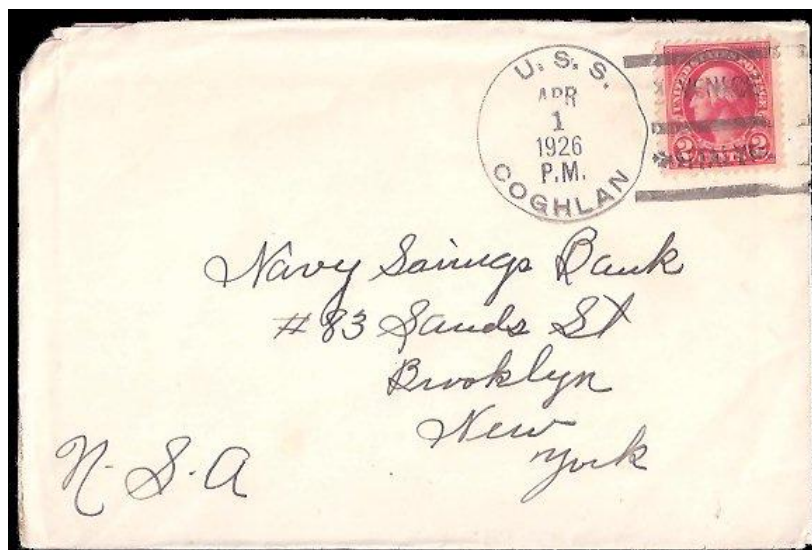 U.S.S.
APR
1
1926
P.M.
COGHLAN
UNITED STATES POSTAGE
2 2
Navy Savings Bank
#83 Sands St
Brooklyn
New
York
N.S.A